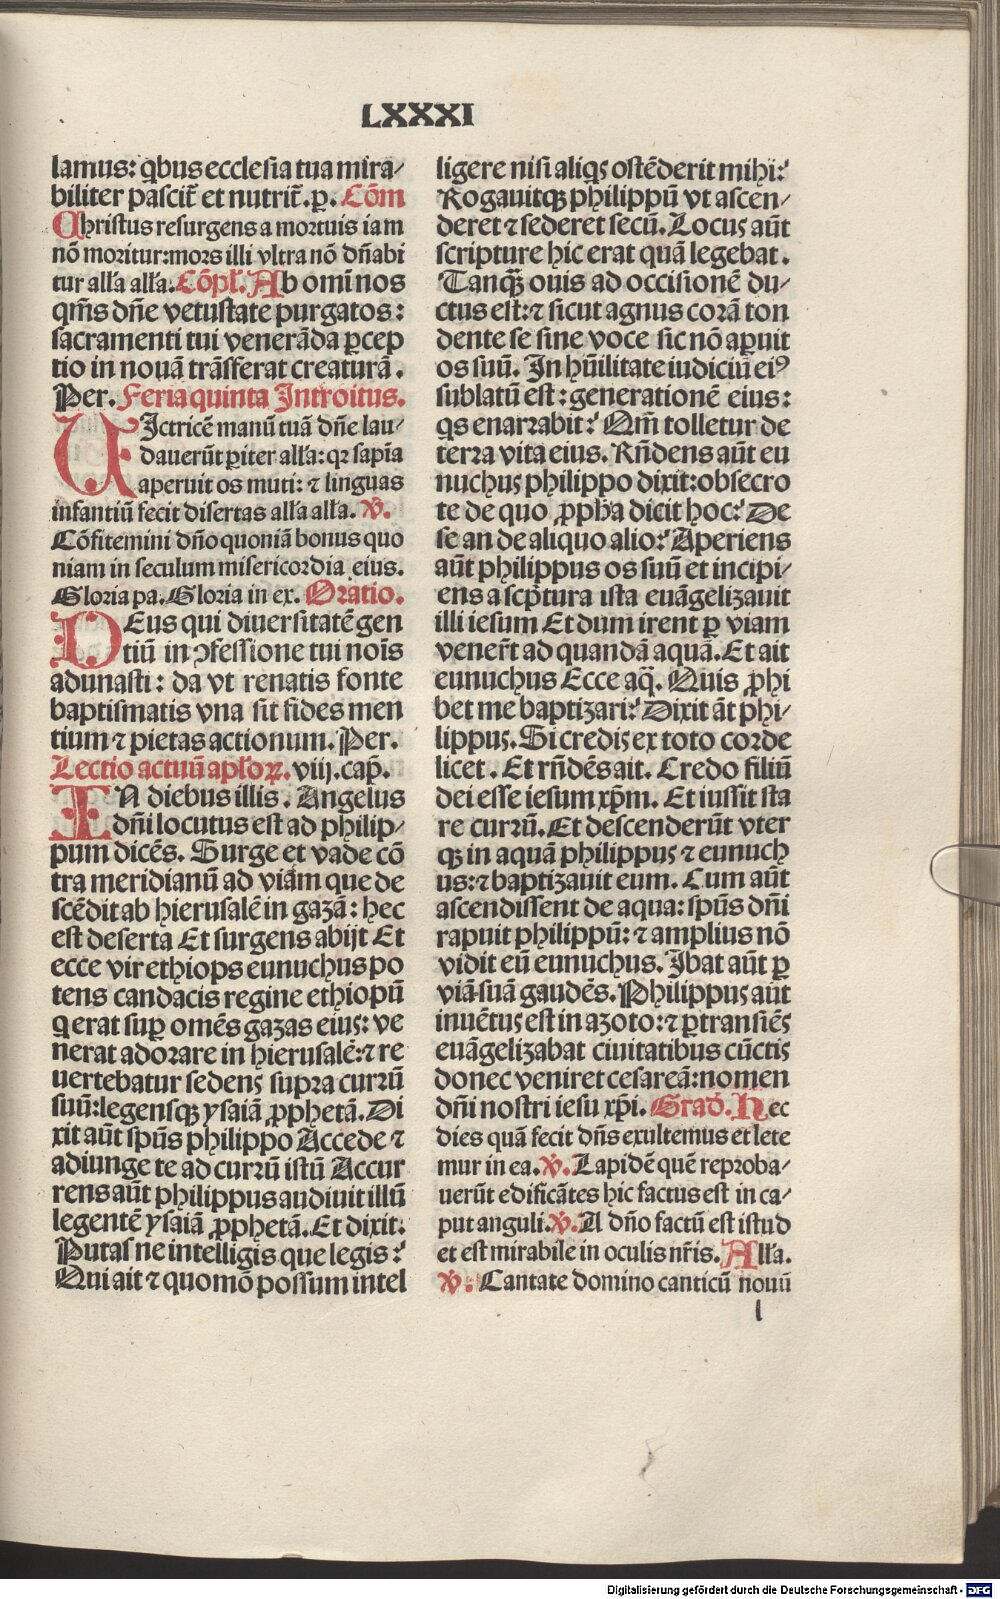 LXXXI
lamus: q̄bus ecclesia tua mira⸗
biliter pascit̄ et nutrit̄. p̱. Cōm
Christus resurgens a mortuis iam
nō moritur: mors illi vltra nō dn̄abi
tur all'a all'a. Cōpl'. Ab omni nos
qm̄s dn̄e vetustate purgatos:
sacramenti tui venerāda ꝑcep
tio in nouā trāsferat creaturā.
Per. Feria quinta Introitus.
VIctricē manū tuā dn̄e lau⸗
dauerūt ꝑiter all'a: qꝛ sapīa
aperuit os muti: ⁊ linguas
infantiū fecit disertas all'a all'a. ℣.
Cōfitemini dn̄o quoniā bonus quo
niam in seculum misericordia eius.
Gloria pa. Gloria in ex. Oratio.
DEus qui diuersitatē gen
tiū in ꝯfessione tui noīs
adunasti: da vt renatis fonte
baptismatis vna sit fides men
tium ⁊ pietas actionum. Per.
Lectio actuū apl'oꝝ. viij. cap̄.
IN diebus illis. Angelus
dn̄i locutus est ad philip⸗
pum dicēs. Surge et vade cō
tra meridianū ad viam que de
scēdit ab hierusalē in gazā: hec
est deserta Et surgens abijt Et
ecce vir ethiops eunuchus po
tens candacis regine ethiopū
q̄ erat suꝑ omēs gazas eius: ve
nerat adorare in hierusalē: ⁊ re
uertebatur sedens supra currū
suū: legensqꝫ ysaiā ꝓphetā. Di
xit aūt spūs philippo Accede ⁊
adiunge te ad currū istū Accur
rens aūt philippus audiuit illū
legentē ysaiā ꝓphetā. Et dixit:
Putas ne intelligis que legis:'
Qui ait ⁊ quomō possum intel
ligere nisi aliqs ostēderit mihi:'
Rogauitqꝫ philippū vt ascen⸗
deret ⁊ sederet secū. Locus aūt
scripture hic erat quā legebat.
Tanqꝫ̄ ouis ad occisionē du⸗
ctus est: ⁊ sicut agnus corā ton
dente se sine voce sic nō aꝑuit
os suū. In hūilitate iudiciū eiꝰ
sublatū est: generationē eius:
qs enarrabit:' Qm̄ tolletur de
terra vita eius. Rn̄dens aūt eu
nuchus philippo dixit: obsecro
te de quo ꝓph̄a dicit hoc:' De
se an de aliquo alio:' Aperiens
aūt philippus os suū et incipi⸗
ens a scp̄tura ista euāgelizauit
illi iesum Et dum irent ꝑ viam
vener̄t ad quandā aquā. Et ait
eunuchus Ecce aq̄. Quis ꝓhi
bet me baptizari:' Dixit āt phi⸗
lippus. Si credis ex toto corde
licet. Et rn̄dēs ait. Credo filiū
dei esse iesum xp̄m. Et iussit sta
re currū. Et descenderūt vter
qꝫ in aquā philippus ⁊ eunuch
us: ⁊ baptizauit eum. Cum aūt
ascendissent de aqua: spūs dn̄i
rapuit philippū: ⁊ amplius nō
vidit eū eunuchus. Ibat aūt ꝑ
viā suā gaudēs. Philippus aūt
inuētus est in azoto: ⁊ ꝑtransiēs
euāgelizabat ciuitatibus cūctis
donec veniret cesareā: nomen
dn̄i nostri iesu xp̄i. Grad̄. Hec
dies quā fecit dn̄s exultemus et lete
mur in ea. ℣. Lapidē quē reproba⸗
uerūt edificātes hic factus est in ca⸗
put anguli. ℣. A dn̄o factū est istud
et est mirabile in oculis nr̄is. All'a.
℣. Cantate domino canticū nouū
l
Digitalisierung gefördert durch die Deutsche Forschungsgemeinschaft - DFG